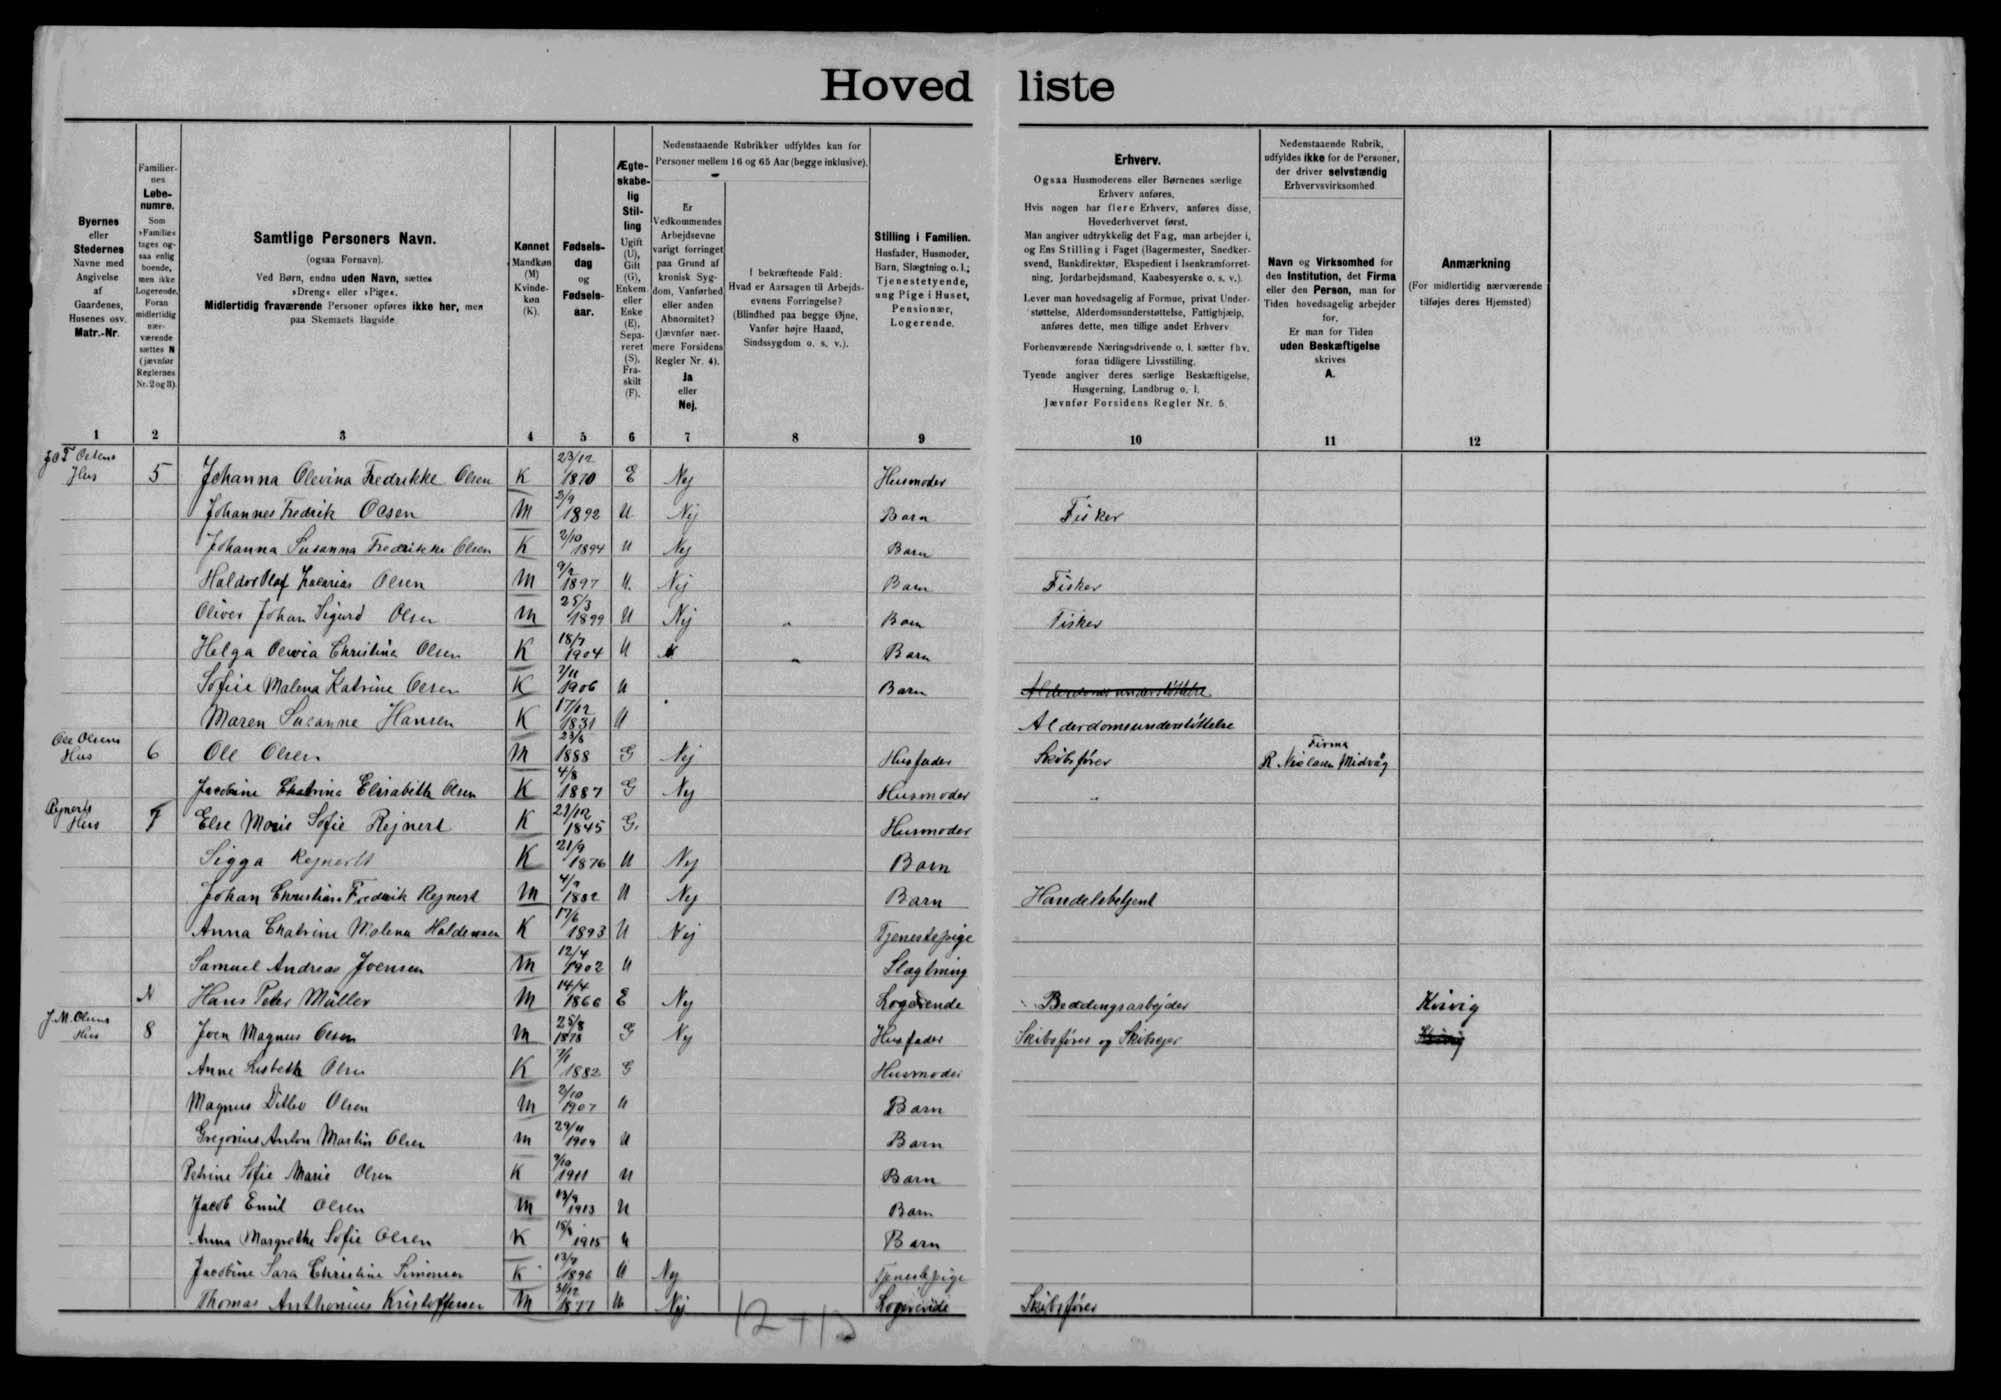 Hovedliste
Byernes eller Stedernes Navne med Angivelse af Gaardenes, Husenes osv. Matr.-Nr.
Familiernes Løbenumre. Som »Familie« tages ogsaa enlig boende, men ikke Logerende. Foran midlertidig nærværende sættes N (jævnfør Reglernes Nr. 2 og 3).
Samtlige Personers Navn. (ogsaa Fornavn). Ved Børn, endnu uden Navn, sættes »Dreng« eller »Pige«. Midlertidig fraværende Personer opføres ikke her, men paa Skemaets Bagside
Kønnet Mandkøn (M) Kvindekøn (K).
Fødselsdag og Fødselsaar.
Ægteskabelig Stilling Ugift (U), Gift (G), Enkem. eller Enke (E), Separeret (S), Fraskilt (F).
Nedenstaaende Rubrikker udfyldes kun for Personer mellem 16 og 65 Aar (begge inklusive).
Er Vedkommendes Arbejdsevne varigt forringet paa Grund af kronisk Sygdom, Vanførhed eller anden Abnormitet? (Jævnfør nærmere Forsidens Regler Nr. 4). Ja eller Nej.
I bekræftende Fald: Hvad er Aarsagen til Arbejdsevnens Forringelse? (Blindhed paa begge Øjne, Vanfør højre Haand, Sindssygdom o. s. v.).
Stilling i Familien. Husfader, Husmoder, Barn, Slægtning o. l.; Tjenestetyende, ung Pige i Huset, Pensionær, Logerende.
Erhverv. Ogsaa Husmoderens eller Børnenes særlige Erhverv anføres. Hvis nogen har flere Erhverv, anføres disse, Hovederhvervet først. Man angiver udtrykkelig det Fag, man arbejder i, og Ens Stilling i Faget (Bagermester, Snedkersvend, Bankdirektør, Ekspedient i Isenkramforretning, Jordarbejdsmand, Kaabesyerske o. s. v.). Lever man hovedsagelig af Formue, privat Understøttelse, Alderdomsunderstøttelse, Fattighjælp, anføres dette, men tillige andet Erhverv Forhenværende Næringsdrivende o. l. sætter fhv. foran tidligere Livsstilling. Tyende angiver deres særlige Beskæftigelse, Husgerning, Landbrug o. l. Jævnfør Forsidens Regler Nr. 5.
Nedenstaaende Rubrik, udfyldes ikke for de Personer, der driver selvstændig Erhvervsvirksomhed
Navn og Virksomhed for den Institution, det Firma eller den Person, man for Tiden hovedsagelig arbejder for. Er man for Tiden uden Beskæftigelse skrives A.
Anmærkning (For midlertidig nærværende tilføjes deres Hjemsted)
1 2 3 4 5 6 7 8 9 10 11 12
Hus 5 Johanna Olevina Fredrikke Olsen K 23/12 1870 E Nej Husmoder
Johannes Fredrik Olsen M 1892 U Nej Barn Fisker
Johanna Susanna Fredrikke Olsen K 2/10 1894 U Nej Barn
Haldor Olaf Zakarias Olsen M 9/2 1897 U. Nej Barn Fisker
Oliver Johan Sigurd Olsen M 25/3 1899 U Nej Barn Fisker
Helga Olivia Christina Olsen K 18/7 1904 U Barn
Sofie Malena Katrine Olsen K 2/11 1906 U Barn Alderdomsunderstøttelse
Maren Susanne Hansen K 17/12 1831 U Alderdomsunderstøttelse
Ole Olsens Hus 6 Ole Olsen M 23/6 1888 G Nej Husfader Skibsfører Firma R. Nielsen Midvåg
Jacobine Ekatrina Elisabeth Olsen K 4/8 1887 G Nej Husmoder
Rejnerts Hus 7 Else Marie Sofie Rejnert K 21/12 1845 G. Husmoder
Sigga Rejnert K 21/9 1876 U Nej Barn
Johan Christian Fredrik Rejnert M 1882 U Nej Barn Handelsbetjent
Anna Ekatrine Malena Haldensen K 17/6 1893 U Nej Tjenestepige
Samuel Andreas Joensen M 12/4 1902 U Slægtning
N Hans Peter Müller M 14/4 1866 E Nej Logerende Beddingsarbejder Kvivig
J. M. Olsens Hus 8 Joen Magnus Olsen M 25/8 1878 G Nej Husfader Skibsfører og Skibsejer Kvivig
Anne Lisbeth Olsen K 7/1 1882 G Husmoder
Magnus Ditlev Olsen M 2/10 1907 U Barn
Gregorius Anton Martin Olsen M 29/11 1909 U Barn
Petrine Sofie Marie Olsen K 1911 U Barn
Jacob Emil Olsen M 13/9 1913 U Barn
Anna Margrethe Sofie Olsen K 1915 U Barn
Jacobine Sara Christine Simonsen K 13/7 1896 U Nej Tjenestepige
Thomas Anthonius Kristoffersen M 31/12 1877 U Nej Logerende Skibsfører
12+13